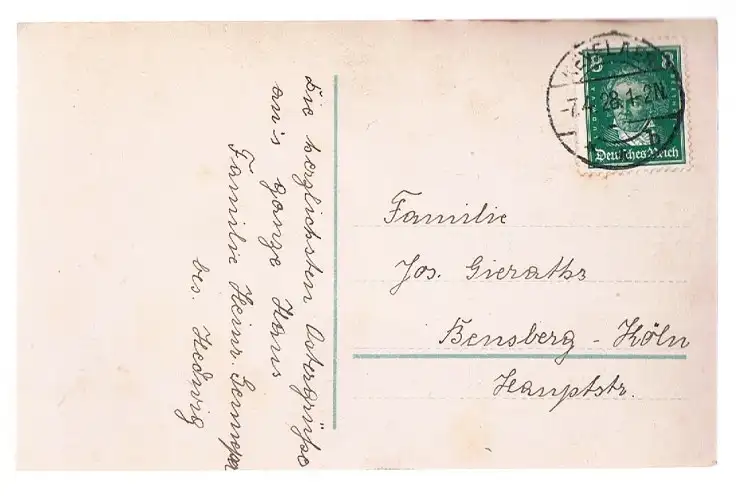 Die herzlichsten Ostergrüße
an's ganze Haus
Familie Heinr.
bes. Hedwig
8 8
-7.4.28.1-2N.
Deutsches Reich
Familie
Jos. Gieraths
Bensberg - Köln
Hauptstr.